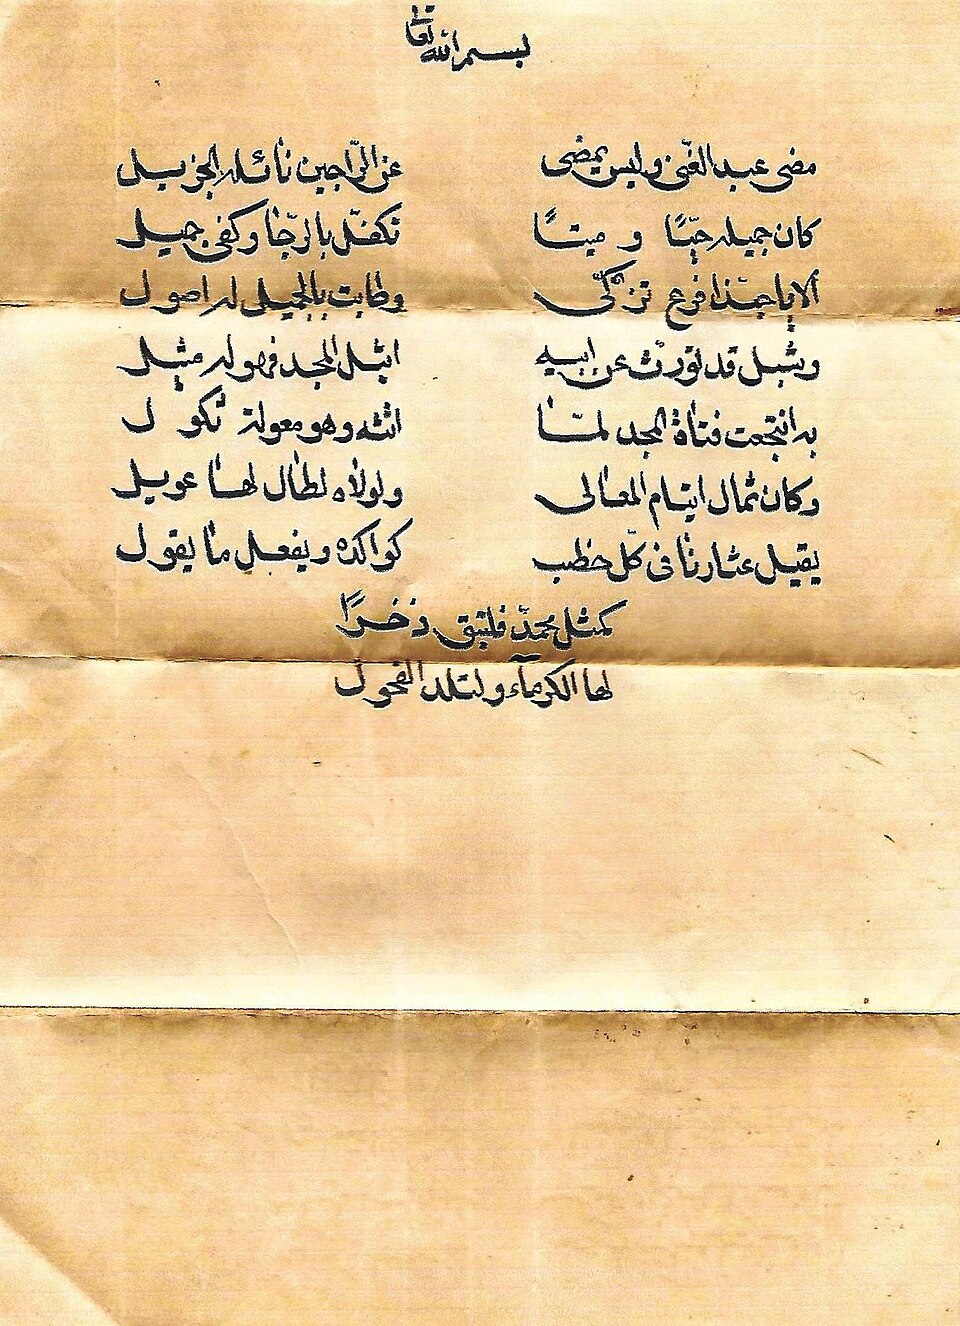 بسم الله تعالى
مضى عبد الغني وليس يمضي عن الراجين نائله الجزيل
كان جميله حيًّا و ميتًا تكفّل بالرّجا وكفى جميل
ألا يا حبّذا فرع تزكّى وطابت بالجميل له اصول
وشبل قد تورّث عن ابيه اثيل المجد فهو له مثيل
به انتجعت فتاة المجد لمّا اتته وهو معولة ثكول
وكان ثمال ايتام المعالى ولولاه لطال لها عويل
يقيل عثارنا فى كلّ خطب ويفعل ما يقول
كمثل محمّد فليبق ذخرًا
لها الكرماء ولتلد الفحول